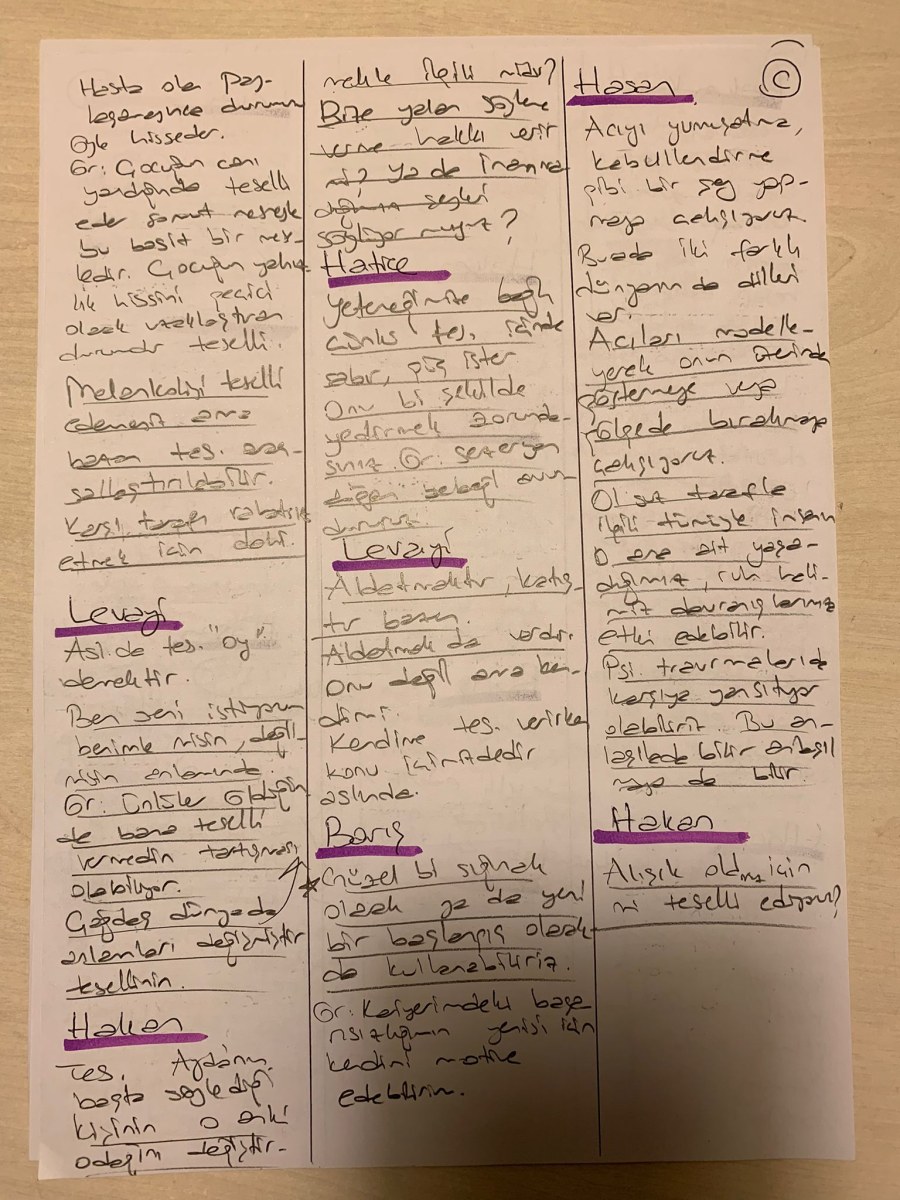 Hasta olan pay-
laşamayınca durumu
öyle hisseder.
Ör: Çocuğun canı
yandığında teselli
eder somut nesneyle
bu basit bir nes-
nedir. Çocuğun yalnız-
lık hissini geçici
olarak uzaklaştıran
durumdur teselli.
Melankoliyi teselli
edemeyiz ama
bazen tes. araç-
sallaştırılabilir.
Karşı tarafı rahatsız
etmek için dahi.
Levayi
Asl. da tes. "oy"
demektir.
Ben seni istiyorum
benimle misin, değil
misin anlamında.
Ör: Ünlüler öldüğün
de bana teselli
vermedin tartışması
olabiliyor.
Çağdaş dünyada
anlamları değişmiştir
tesellinin.
Hakan
Tes. Aydanın
başta söylediği
kişinin o anki
odağın değiştir-
mekle ilgili midir?
Bize yalan söyleme
verme hakkı verir
mi? ya da inanma
dığımız şeyleri
söylüyor muyuz?
Hatice
Yeteneğimize bağlı
çünkü tes. içinde
sabır, güç ister
Onu bi şekilde
yedirmek zorunda-
sınız. Ör:
doğan bebeği avun
durursa.
Levayi
Aldatmaktır, katış-
tır bazen.
Aldatmak da vardır.
Onu değil ama ken-
dimi.
Kendine tes. verirken
konu içimizdedir
aslında.
Barış
* Güzel bi sığınak
olarak ya da yeni
bir başlangıç olarak
da kullanabiliriz.
Ör: Kariyerimdeki başa-
rısızlığımın yenisi için
kendini motive
edebilirim.
C
Hasan
Acıyı yumuşatma,
kabullendirme
gibi bir şey yap-
maya çalışıyoruz.
Burada iki farklı
dünyanın da dilleri
var.
Acıları modelle-
yerek onun üzerinde
göstermeye veya
gölgede bırakmaya
çalışıyoruz.
Ol suz tarafla
ilgili tümüyle insan
O ana ait yaşa-
dığımız, ruh hali-
miz davranışlarımız
etki edebilir.
Psi. travmaları da
karşıya yansıtıyor
olabiliriz. Bu an-
laşılada bilir anlaşıl
maya da bilir.
Hakan
Alışık oldmz için
mi teselli ediyoruz?